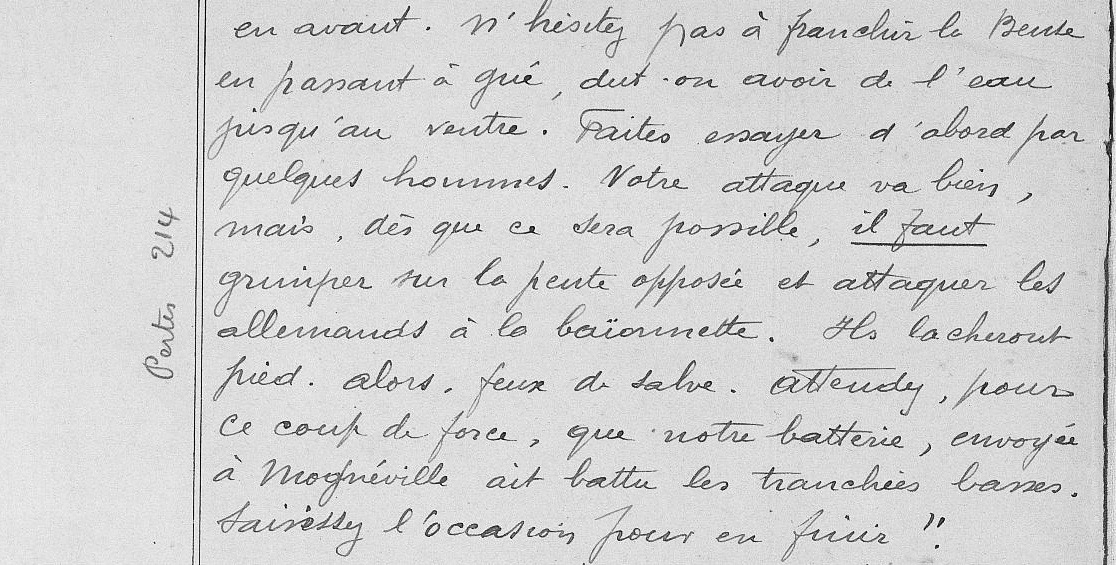 en avant. N'hésitez pas à franchir la Beuse
en passant à gué, dut-on avoir de l'eau
jusqu'au ventre. Faites essayer d'abord par
quelques hommes. Votre attaque va bien,
mais, dès que ce sera possible, il faut
grimper sur la pente opposée et attaquer les
allemands à la baïonnette. Ils lacheront
pied. alors, feux de salve. attendez, pour
ce coup de force, que notre batterie, envoyée
à Mognéville ait battu les tranchées basses.
Saisissez l'occasion pour en finir".
Pertes 214